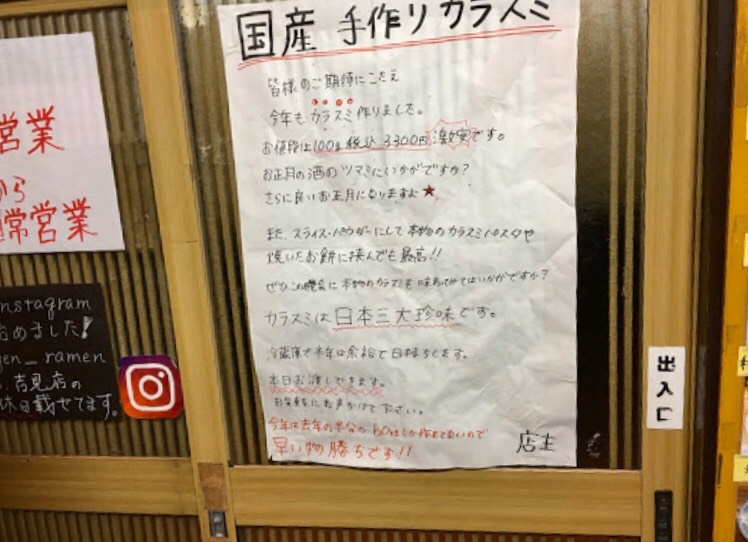 国産 手作りカラスミ
皆様のご期待にこたえ
今年もカラスミ作りました。
お値段は100g税込 3300円 激安です。
お正月の酒のツマミにいかがですか?
さらに良いお正月になりますよ★
また、スライス・パウダーにして本物のカラスミパスタや
焼いたお餅に挟んでも最高!!
ぜひこの機会に本物のカラスミを味わってみてはいかがですか?
カラスミは日本三大珍味です。
冷蔵庫で半年は余裕で日持ちします。
本日お渡しできます。
お気軽にお声かけて下さい。
今年は去年の半分の
しか作れてないので
早い物勝ちです!!
店主
営業
から
常営業
nstagram
始めました!
gen_ramen
吉見店の
休日載せてます。
出入口